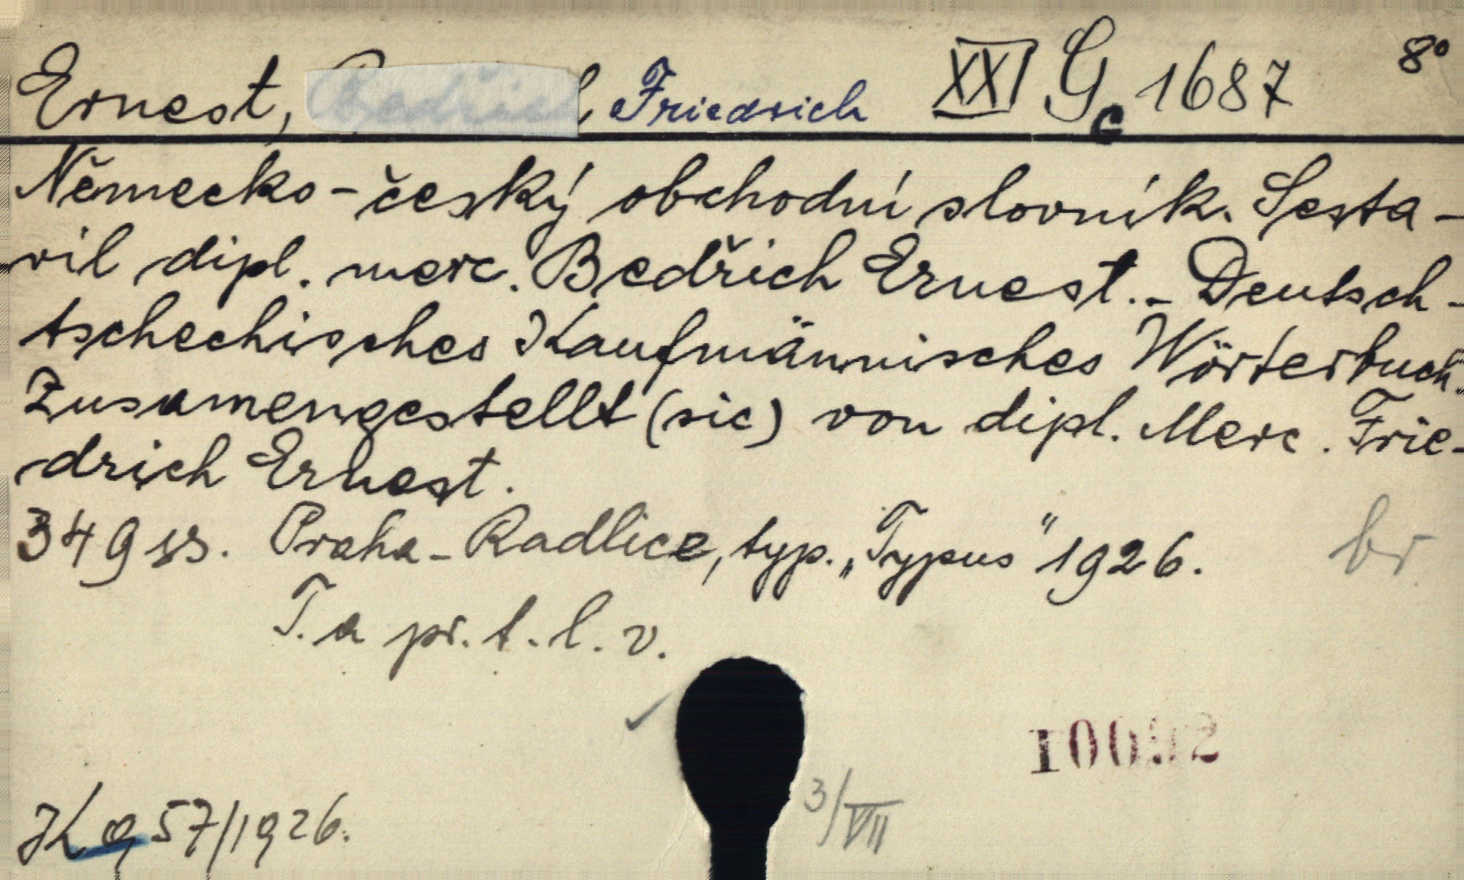 Ernest, Bedřich Friedrich XXI Gc 1687 8°
Německo-český obchodní slovník. Sesta-
vil dipl. merc. Bedřich Ernest. - Deutsch-
tschechisches Kaufmännisches Wörterbuch.
Zusamengestellt (sic) von dipl. Merc. Frie-
drich Ernest.
349 ss. Praha-Radlice, typ. „Typus" 1926. br.
T. a př. t. l. v.
57/1926.
3/VII